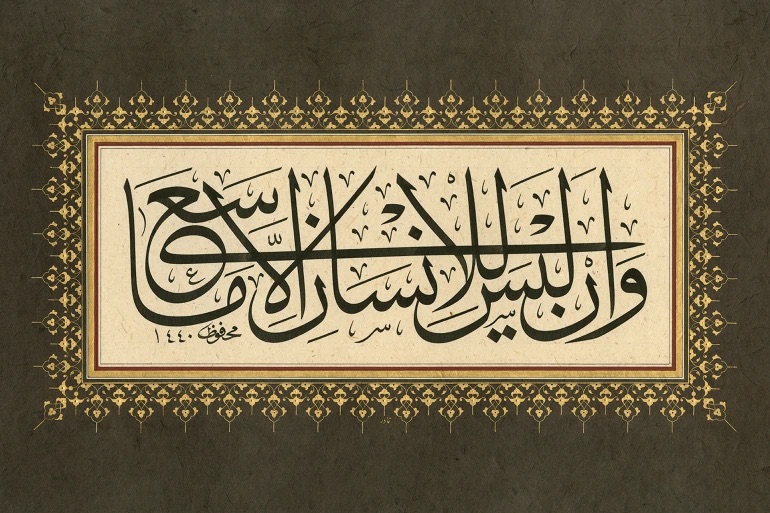 وَأَنْ لَيْسَ لِلْإِنْسَانِ إِلَّا مَا سَعَى
محفوظ ١٤٤٠